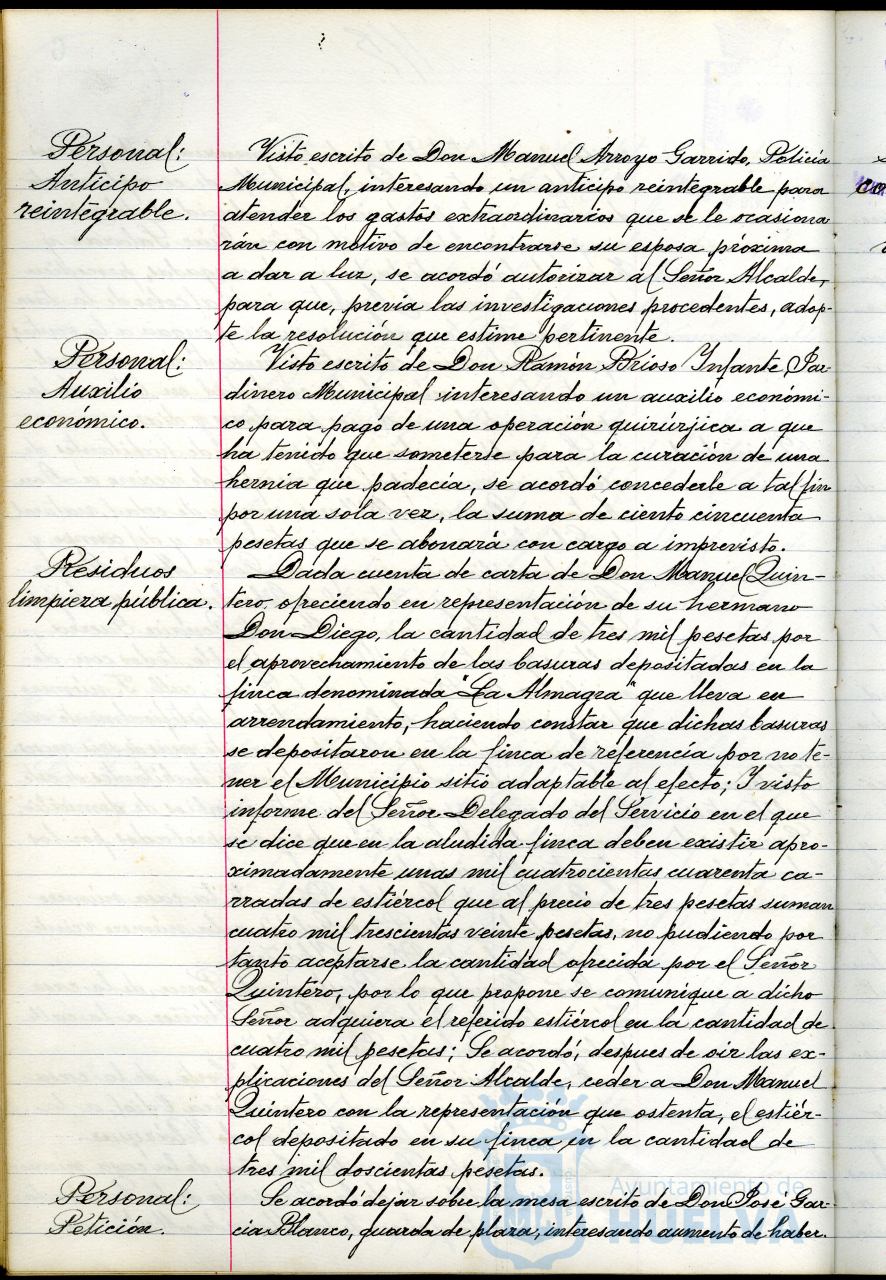 Personal:
Anticipo
reintegrable.
Visto escrito de Don Manuel Arroyo Garrido, Policía
Municipal, interesando un anticipo reintegrable para
atender los gastos extraordinarios que se le ocasiona
rán con motivo de encontrarse su esposa próxima
a dar a luz, se acordó autorizar al Señor Alcalde,
para que, previa las investigaciones procedentes, adop-
te la resolución que estime pertinente.
Personal:
Auxilio
económico.
Visto escrito de Don Ramón Brioso Infante, Jar-
dinero Municipal interesando un auxilio económi-
co para pago de una operación quirúrjica a que
ha tenido que someterse para la curación de una
hernia que padecía, se acordó concederle a tal fin
por una sola vez, la suma de ciento cincuenta
pesetas que se abonará con cargo a imprevisto.
Residuos
limpieza pública.
Dada cuenta de carta de Don Manuel Quin-
tero, ofreciendo en representación de su hermano
Don Diego, la cantidad de tres mil pesetas por
el aprovechamiento de las basuras depositadas en la
finca denominada "La Almagra" que lleva en
arrendamiento, haciendo constar que dichas basuras
se depositaron en la finca de referencia por no te-
ner el Municipio sitio adaptable al efecto; Y visto
informe del Señor Delegado del Servicio en el que
se dice que en la aludida finca deben existir apro-
ximadamente unas mil cuatrocientas cuarenta ca-
rradas de estiércol que al precio de tres pesetas suman
cuatro mil trescientas veinte pesetas, no pudiendo por
tanto aceptarse la cantidad ofrecida por el Señor
Quintero, por lo que propone se comunique a dicho
Señor adquiera el referido estiércol en la cantidad de
cuatro mil pesetas; Se acordó, despues de oir las ex-
plicaciones del Señor Alcalde, ceder a Don Manuel
Quintero con la representación que ostenta, el estiér-
col depositado en su finca en la cantidad de
tres mil doscientas pesetas.
Personal:
Petición.
Se acordó dejar sobre la mesa escrito de Don José Gar-
cia Blanco, guarda de plaza, interesando aumento de haber.
Ayuntamiento de
HUELVA